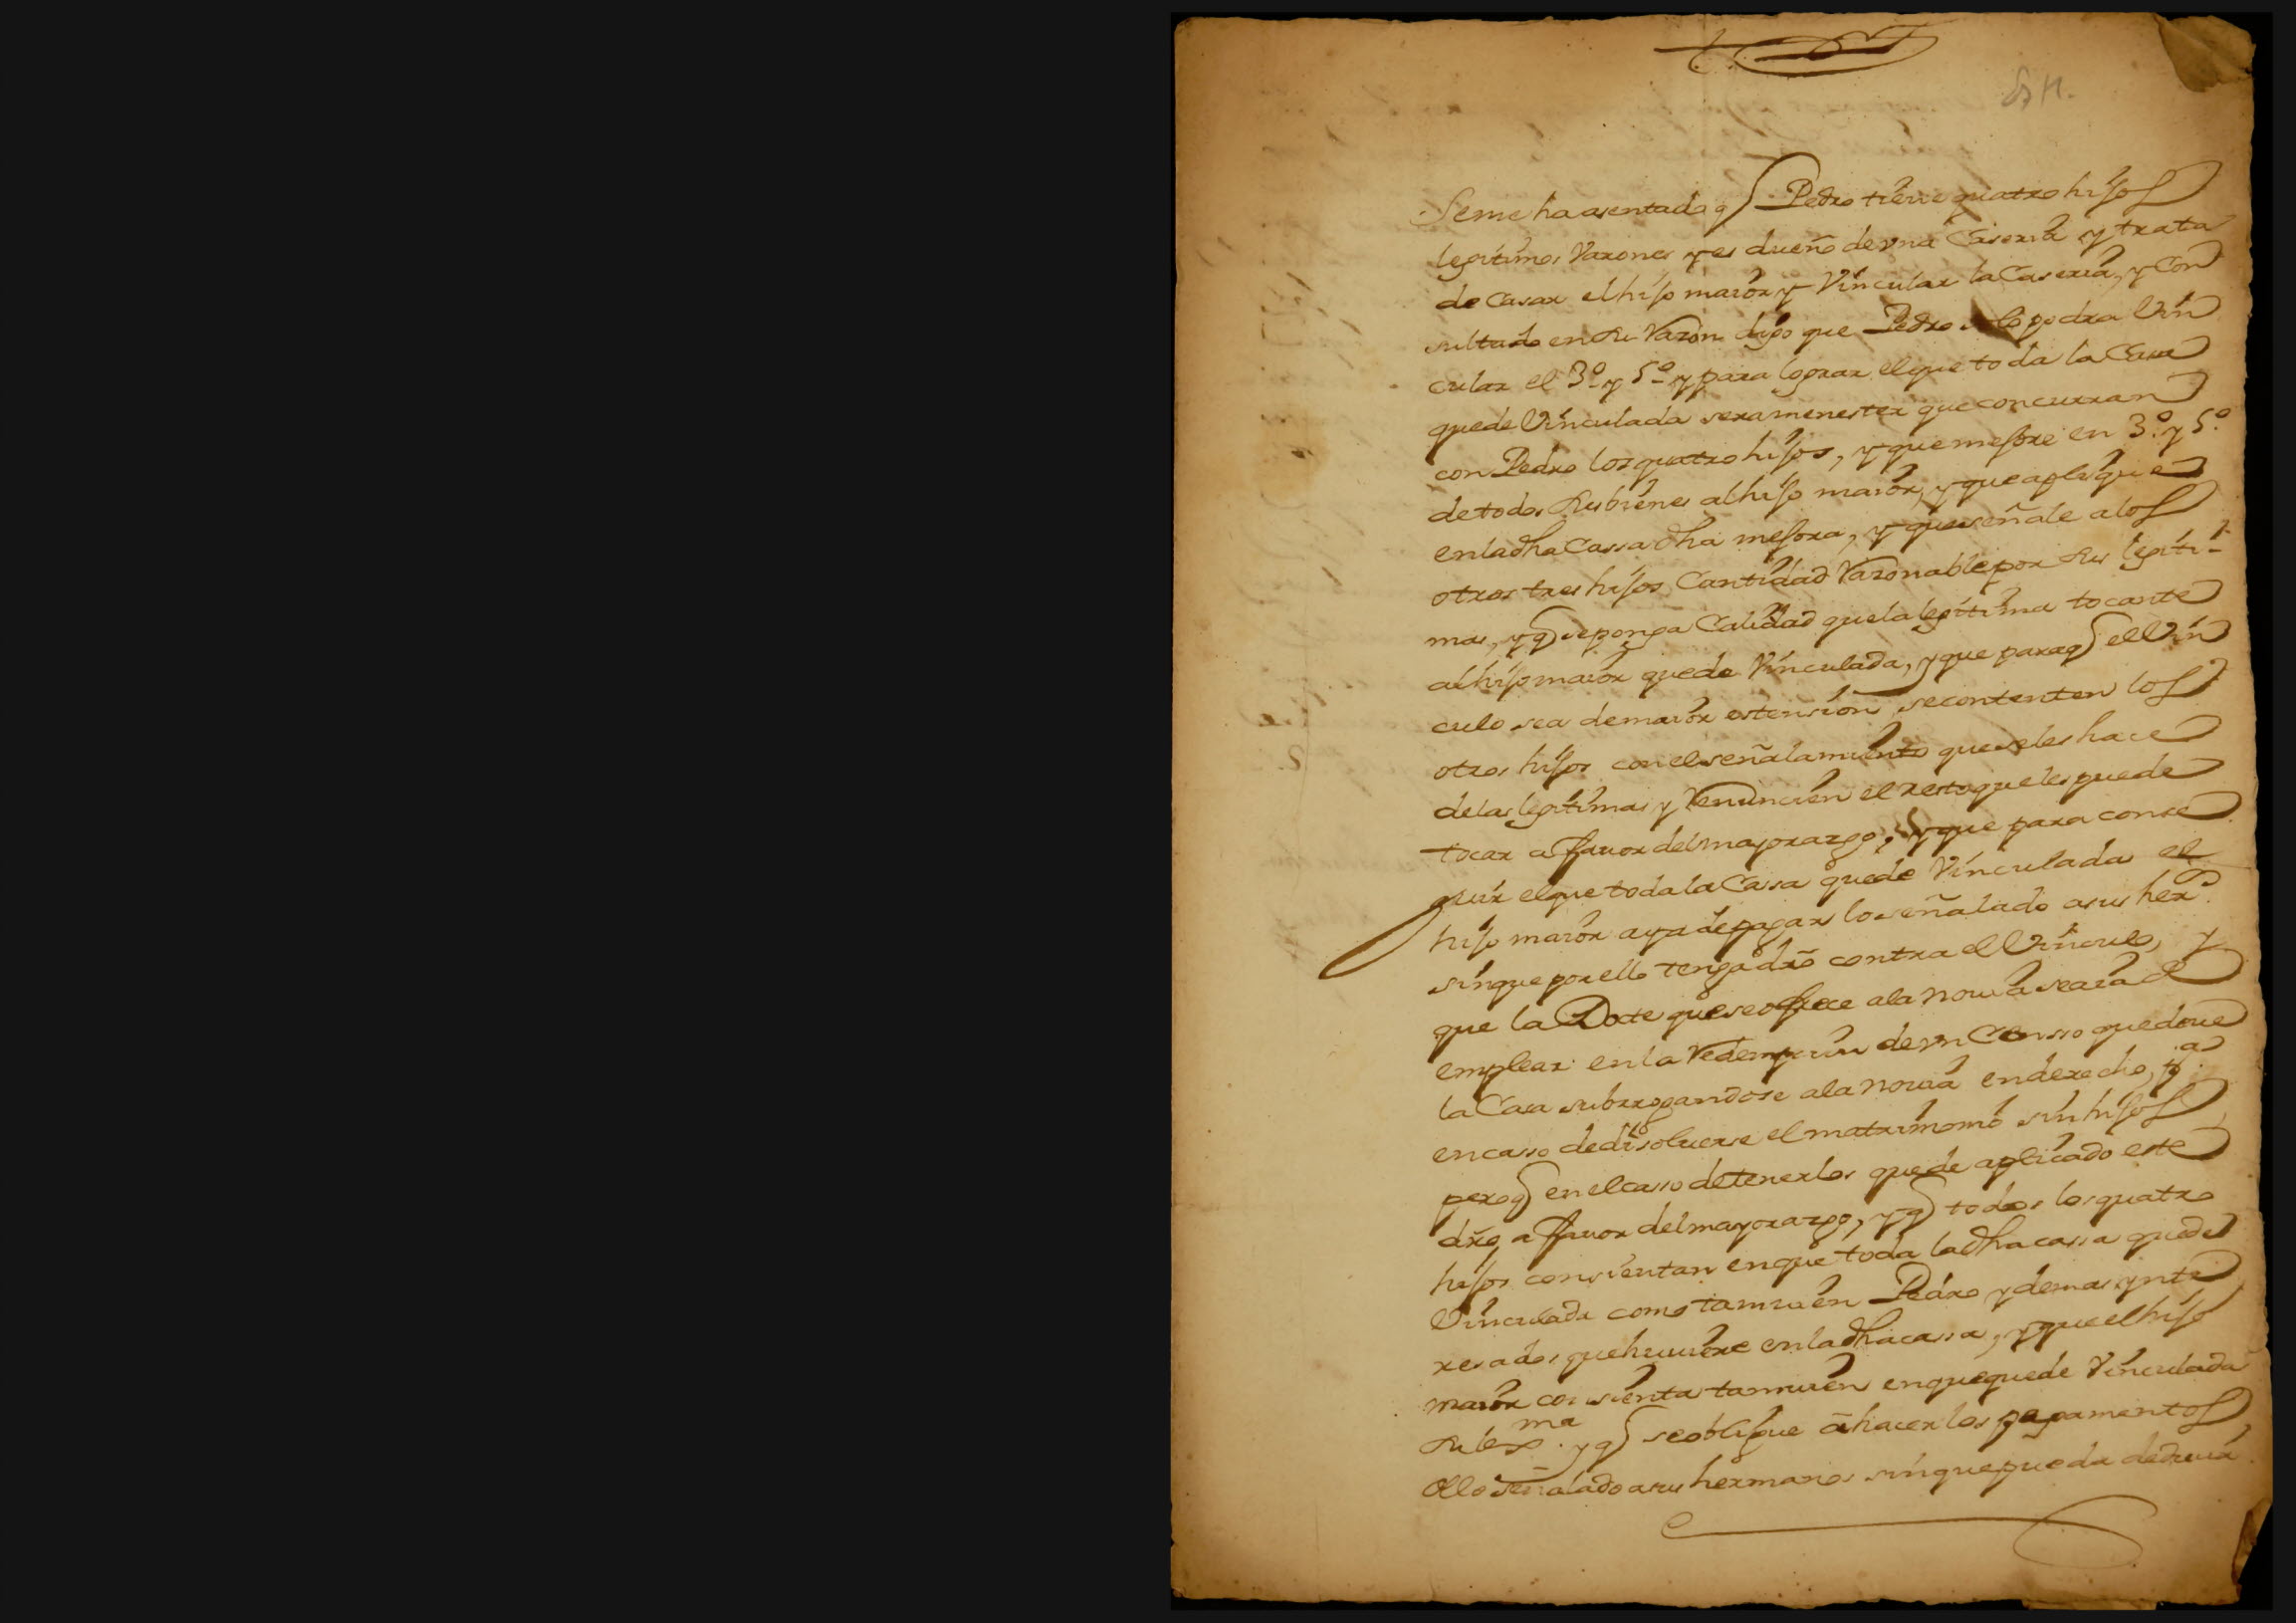 Se me ha asentado q Pedro tiene quatro hijos
legitimos Varones y es dueño de vna Caseria y trata
de Casar el hijo maior y Vincular la Caseria, y Con
sultado en su Razon digo que Pedro solo podra Vin
cular el 3º y 5º y para lograr el que toda la Casa
quede Vinculada sera menester que concurran
con Pedro los quatro hijos, y que mejore en 3º y 5º
de todos sus bienes al hijo maior, y que aplique
en la dha Cassa dha mejora, y que señale a los
otros tres hijos Cantidad Razonable por sus legiti-
mas, y q se ponga Calidad que la legitima tocante
al hijo maior quede Vinculada, y que para q el Vin
culo sea de maior estension se contenten los
otros hijos con el señalamiento que se les hace
de las legitimas y Renuncien el resto que les puede
tocar a ffauor del mayorazgo, y que para conse
guir el que toda la Cassa quede Vinculada el
hijo maior aya de pagar lo señalado a sus hers
sin que por ello tenga dro contra el Vinculo, y
que la Dote que se ofrece a la nouia se aia de
emplear en la Redempcion de vn Censso que deue
la Casa subrrogandose a la nouia en derecho, pa
en casso de disoluerse el matrimonio sin hijos
pero q en el casso de tenerlos quede aplicado este
dro a ffauor del mayorazgo, y q todos los quatro
hijos consientan en que toda la dha cassa quede
Vinculada como tamuien Pedro y demas ynte
resados que huuiere en la dha cassa, y que el hijo
maior consienta tamuien en que quede Vinculada
su legma. y q se obligue a hacer los pagamentos
de lo señalado a sus hermanos sin que pueda deduçir